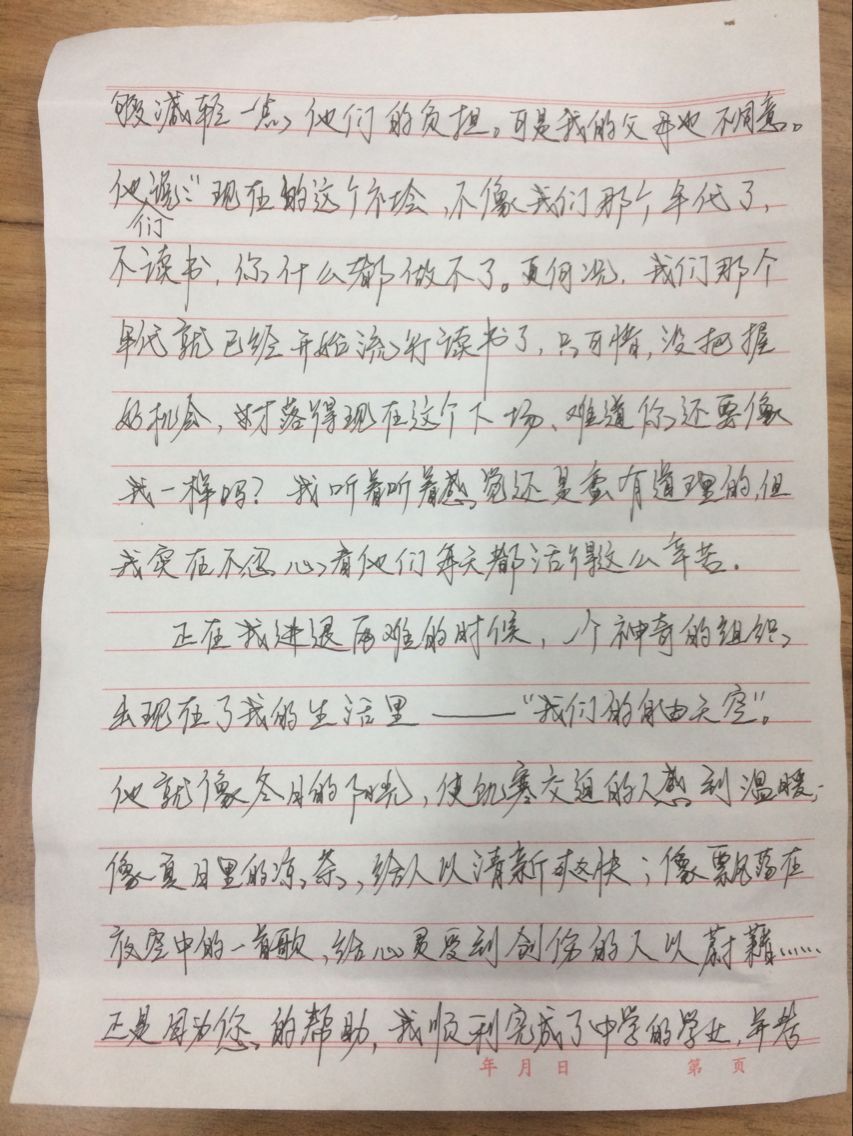 够减轻一点他们的负担。可是我的父母也不同意。
他们说:“现在的这个社会,不像我们那个年代了,
不读书,你什么都做不了。更何况,我们那个
年代就已经开始流行读书了,只可惜,没把握
好机会,才落得现在这个下场、难道你还要像
我一样吗?我听着听着感觉还是蛮有道理的,但
我实在不忍心看他们每天都活得这么辛苦.
正在我进退两难的时候,一个神奇的组织
出现在了我的生活里——“我们的自由天空”。
他就像冬日的阳光,使饥寒交迫的人感到温暖;
像夏日里的凉茶,给人以清新爽快;像飘荡在
夜空中的一首歌,给心灵受到创伤的人以蔚藉……
正是因为您的帮助,我顺利完成了中学的学业,并考
年 月 日 第 页